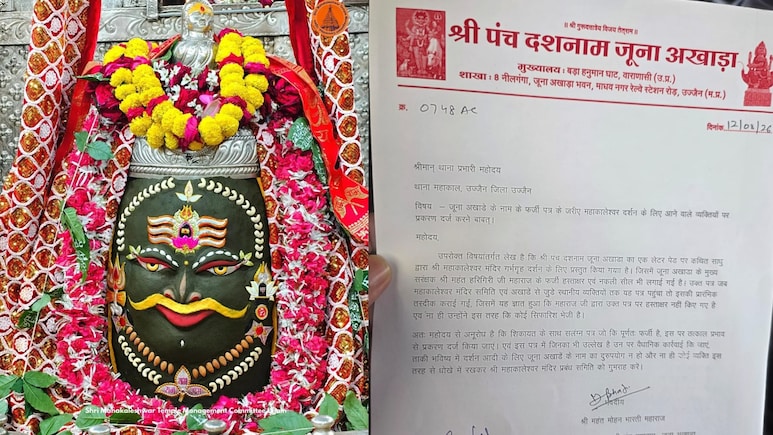 Shri Mahakaleshwar Temple Management Committee Ujjain
॥ श्री गुरूदत्तात्रेय विजय तेतराम् ॥
श्री पंच दशनाम जूना अखाड़ा
मुख्यालय: बड़ा हनुमान घाट, वाराणसी (उ.प्र.)
शाखा: 8 नीलगंगा, जूना अखाड़ा भवन, माधव नगर रेल्वे स्टेशन रोड़, उज्जैन (म.प्र.)
क्र. 0748AC
दिनांक 12/03/26
श्रीमान् थाना प्रभारी महोदय
थाना महाकाल, उज्जैन जिला उज्जैन
विषय – जूना अखाडे के नाम के फर्जी पत्र के जरीए महाकालेश्वर दर्शन के लिए आने वाले व्यक्तियों पर
प्रकरण दर्ज करने बाबत्।
महोदय,
उपरोक्त विषयातंगर्त लेख है कि श्री पंच दशनाम जूना अखाडा का एक लेटर पेड पर कथित साधु
द्वारा श्री महाकालेश्वर मंदिर गर्भगृह दर्शन के लिए प्रस्तुत किया गया है। जिसमें जूना अखाडे के मुख्य
संरक्षक श्री महत हरिगिरी जी महाराज के फर्जी हस्ताक्षर एवं नकली सील भी लगाई गई है। उक्त पत्र जब
महाकालेश्वर मंदिर समिति एवं अखाडे से जुडे स्थानीय व्यक्तियों तक यह पत्र पहुंचा तो इसकी प्रारंभिक
तस्दीक कराई गई, जिसमें यह ज्ञात हुआ कि महाराज जी द्वारा उक्त पत्र पर हस्ताक्षर नहीं किए गए है
एवं ना ही उन्होंने इस तरह कि कोई सिफारिश भेजी है।
अतः महोदय से अनुरोध है कि शिकायत के साथ संलग्न पत्र जो कि पूर्णतः फर्जी है, इस पर तत्काल प्रभाव
से प्रकरण दर्ज किया जाएं। एवं इस पत्र में जिनका भी उल्लेख है उन पर वैधानिक कार्रवाई कि जाएं,
ताकी भविष्य में दर्शन आदी के लिए जूना अखाडे के नाम का दुरुपयोग न हो और ना ही कोई व्यक्ति इस
तरह से धोखे में रखकर श्री महाकालेश्वर मंदिर प्रबंध समिति को गुमराह करें।
श्री महत मोहन भारती महाराज